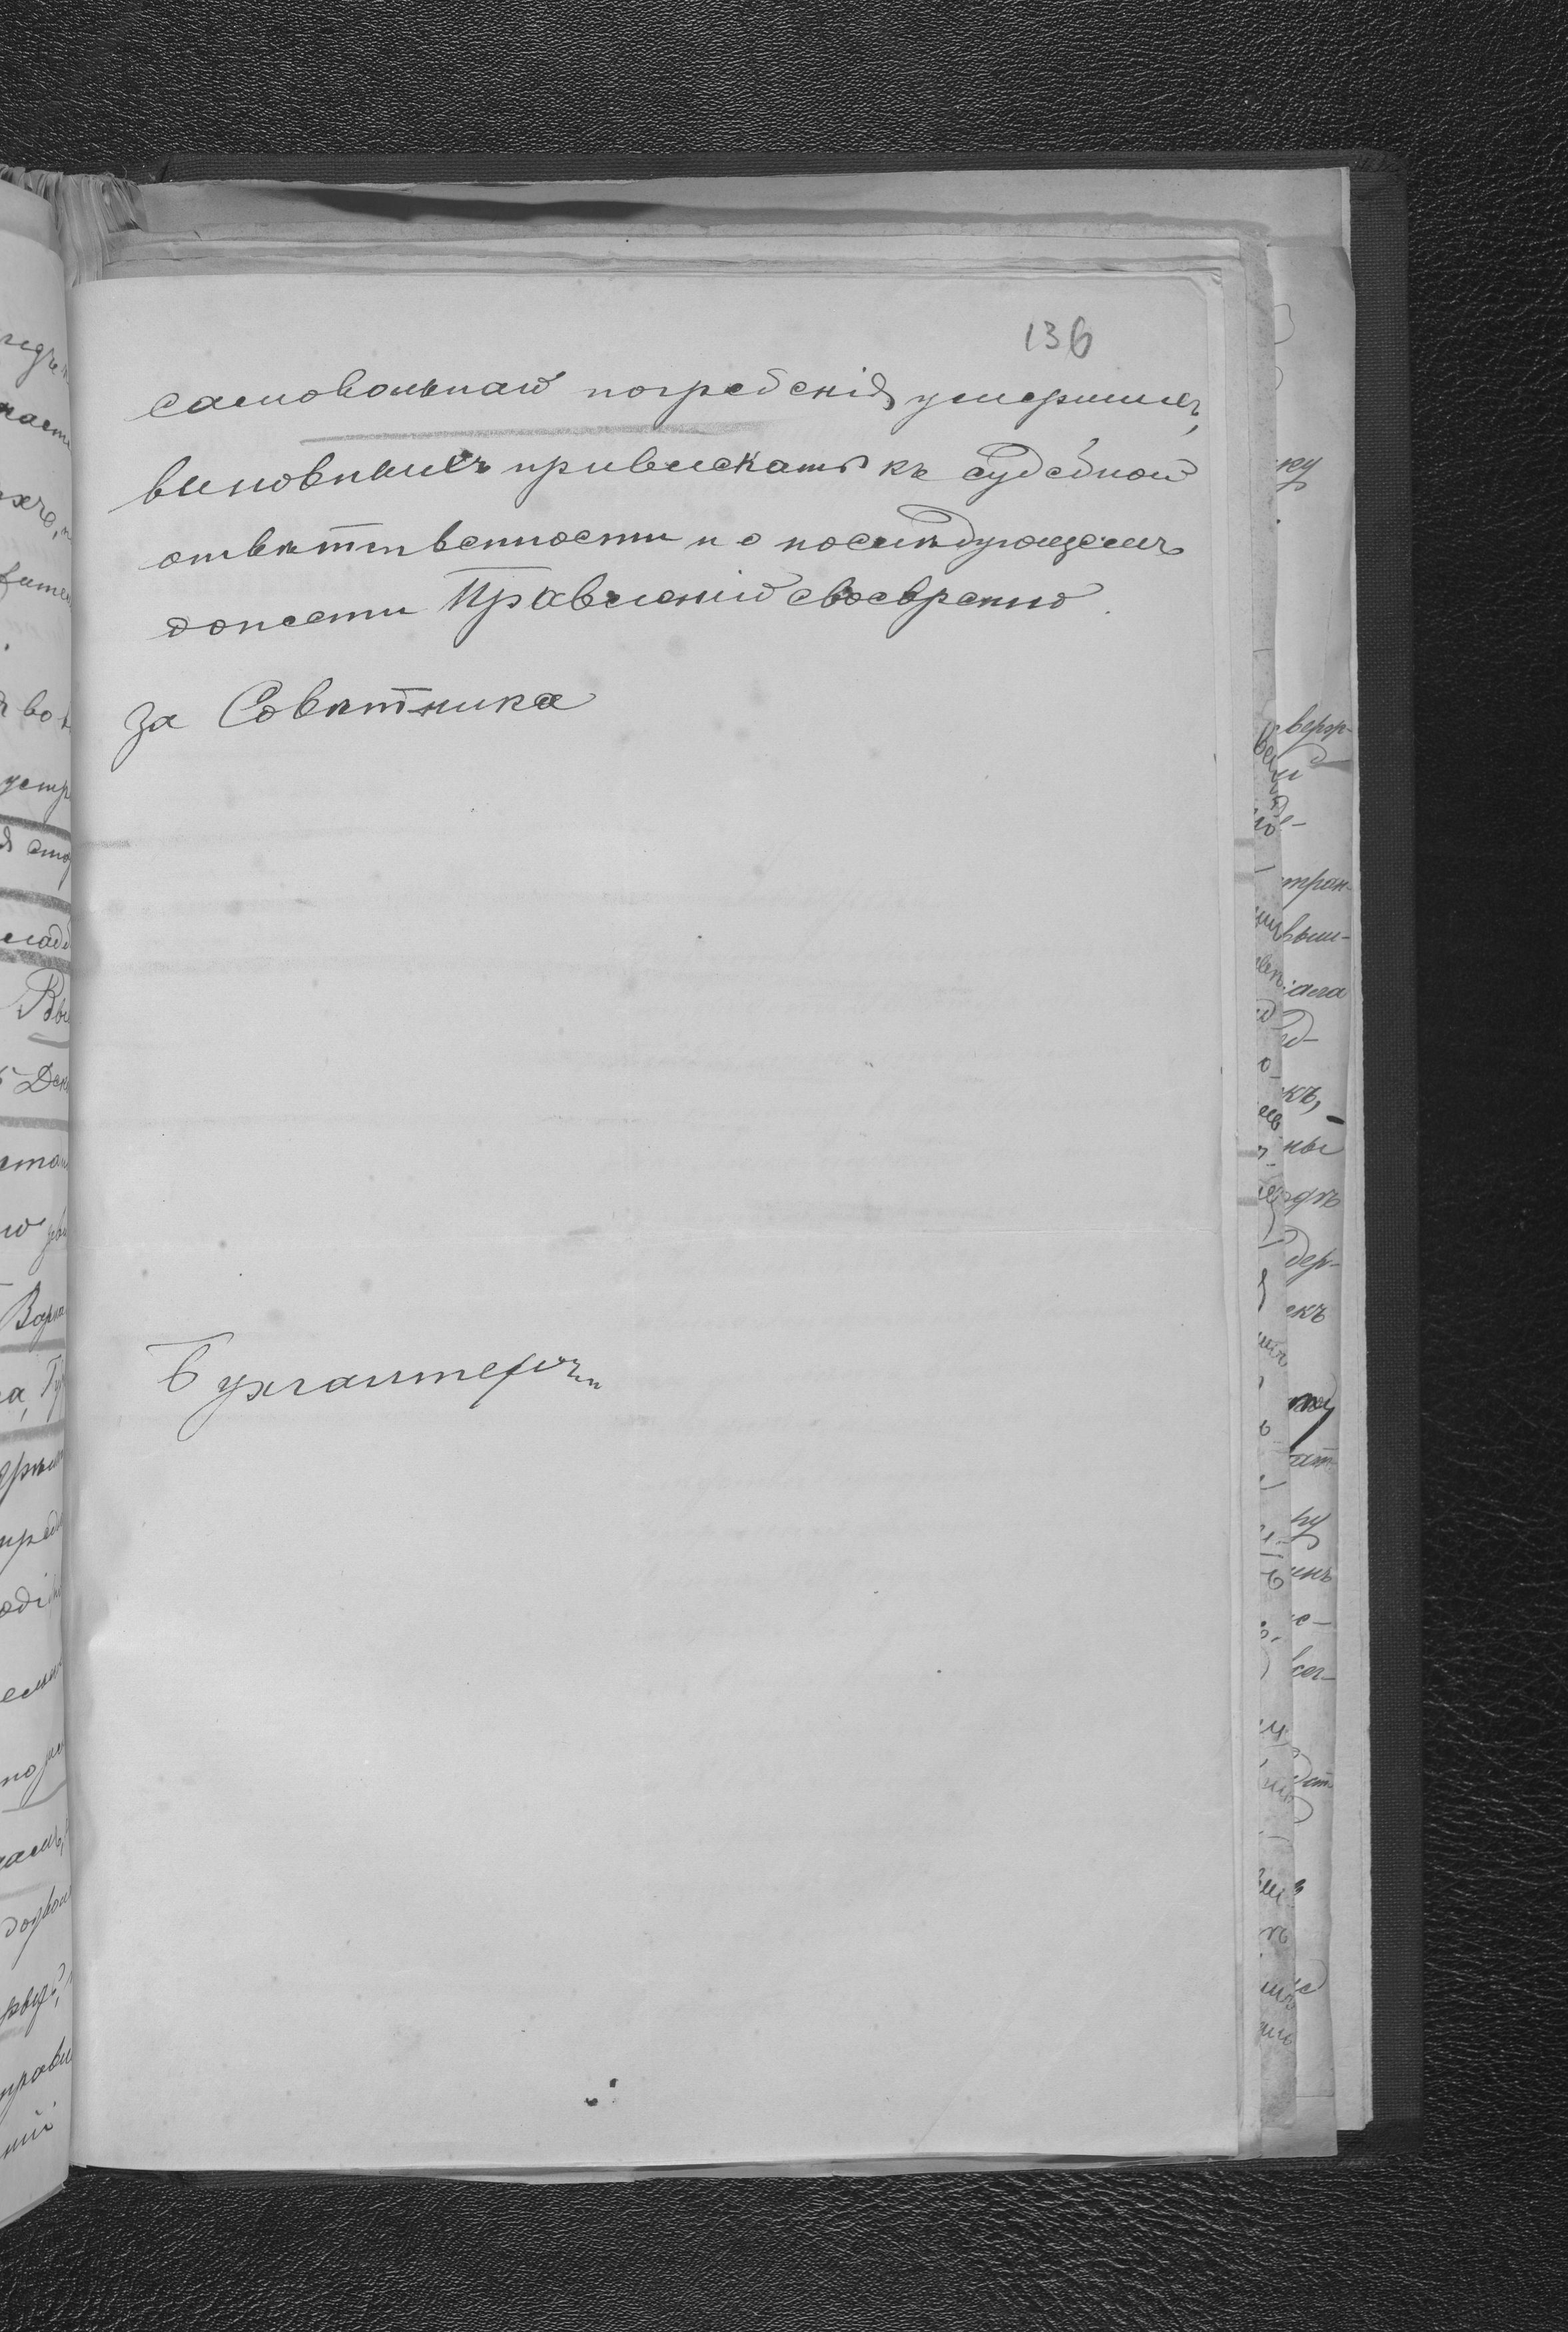 136
самовольнаго погребенія умершихъ,
виновныхъ привлекать къ судебной
отвѣтственности и о послѣдующемъ
донести Правленію своевренно.
За Совѣтника
Бухгалтеръ